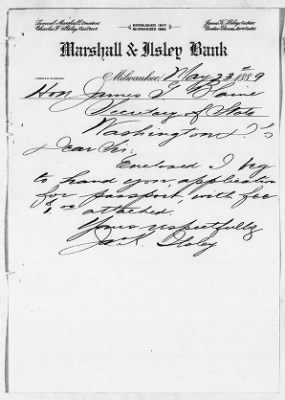 Samuel Marshall, President
Charles F. Ilsley, Vice Prest.
ESTABLISHED 1847
INCORPORATED 1888
James K. Ilsley, Cashier
Marshall & Ilsley Bank
Milwaukee, May 23d 1889
Hon James G Blaine
Secretary of State
Washington
Dear Sir:
Enclosed I beg
to hand you application
for passport, with fee
$1.00 attached.
Yours respectfully
Jas K. Ilsley